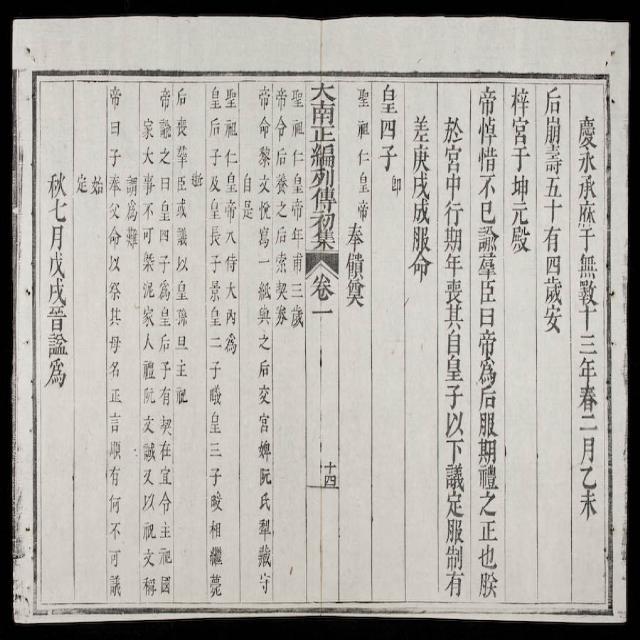 慶永承庥于無斁十三年春二月乙未
后崩壽五十有四歲安
梓宮于坤元殿
帝悼惜不已諭羣臣曰帝為后服期禮之正也朕
於宮中行期年喪其自皇子以下議定服制有
差庚戌成服命
皇四子即
聖祖仁皇帝奉饋奠
大南正編列傳初集 卷一 十四
聖祖仁皇帝年甫三歲
帝令后養之后索契券
帝命黎文悅寫一紙與之后交宮婢阮氏犁藏守
自是
聖祖仁皇帝入侍大內為
皇后子及皇長子景皇二子曦皇三子晙相繼薨
逝
后喪羣臣或議以皇孫旦主祀
帝諭之曰皇四子為皇后子有契在宜令主祀國
家大事不可桀泥家人禮阮文誠又以祝文稱
謂為難
帝曰子奉父命以祭其母名正言順有何不可議
始
定
秋七月戊戌晉謚為